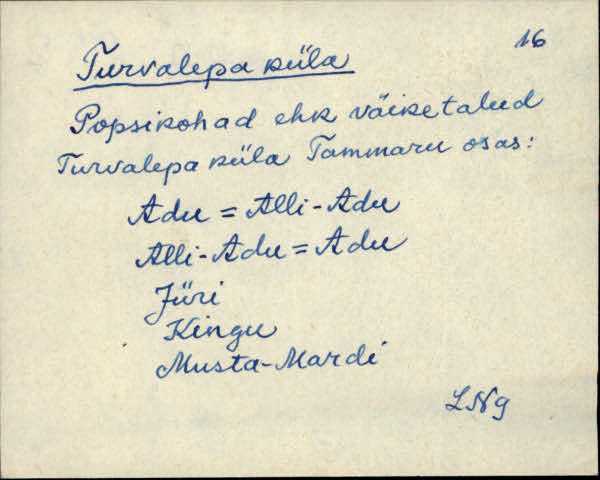 16
Turvalepa küla
Popsikohad ehk väiketalud
Turvalepa küla Tammaru osas:
Adu = Alli-Adu
Alli-Adu = Adu
Jüri
Kingu
Musta-Mardi
LNg